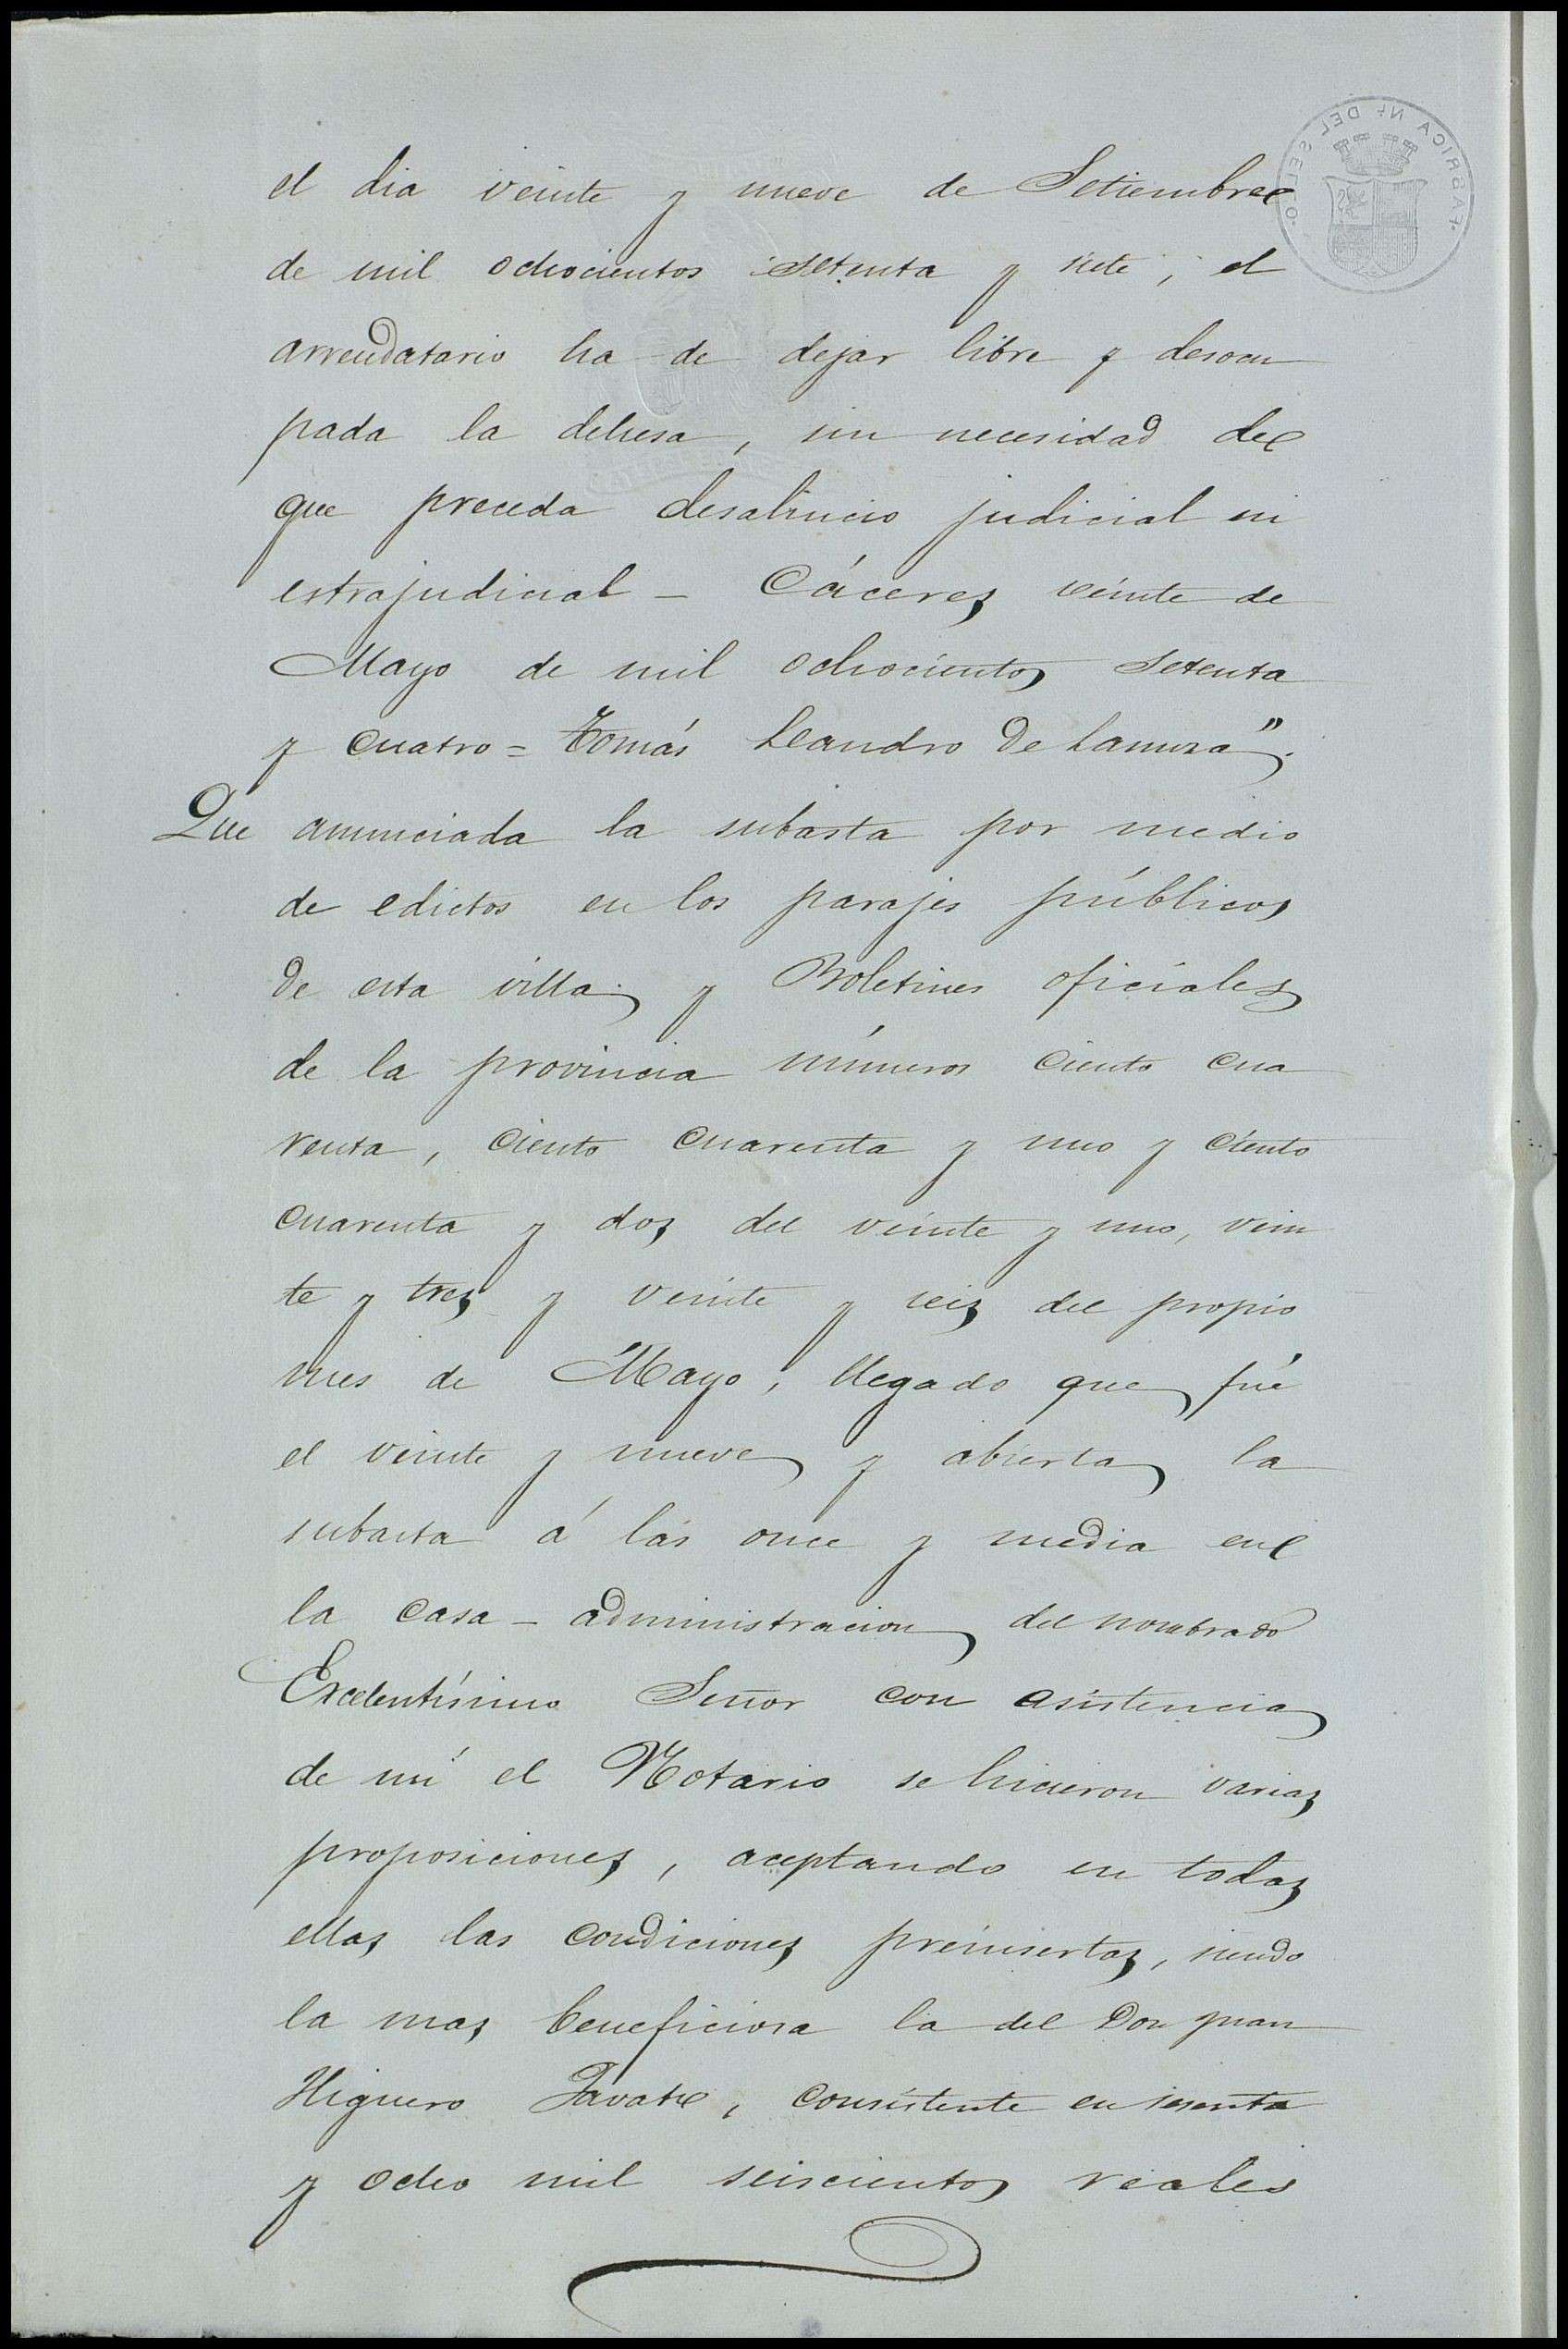 FABRICA N.l DEL SELLO
el dia veinte y nueve de Setiembre
de mil ochocientos setenta y siete, el
arrendatario ha de dejar libre y desocu
pada la dehesa, sin necesidad de
que preceda desahucio judicial ni
estrajudicial - Cáceres veinte de
Mayo de mil ochocientos setenta
y cuatro = Tomás Leandro de
Que anunciada la subasta por medio
de edictos en los parajes públicos
de esta villa y Boletines oficiales
de la provincia números ciento cua
renta, ciento cuarenta y uno y ciento
cuarenta y dos del veinte y uno, vein
te y tres y veinte y seis del propio
mes de Mayo, llegado que fué
el veinte y nueve y abierta la
subasta á las once y media en
la casa - administracion del nombrado
Excelentísimo Señor con asistencia
de mí el Notario se hicieron varias
proposiciones, aceptando en todas
ellas las condiciones preinsertas, siendo
la mas beneficiosa la del Don Juan
Higuero , consistente en sesenta
y ocho mil seiscientos reales